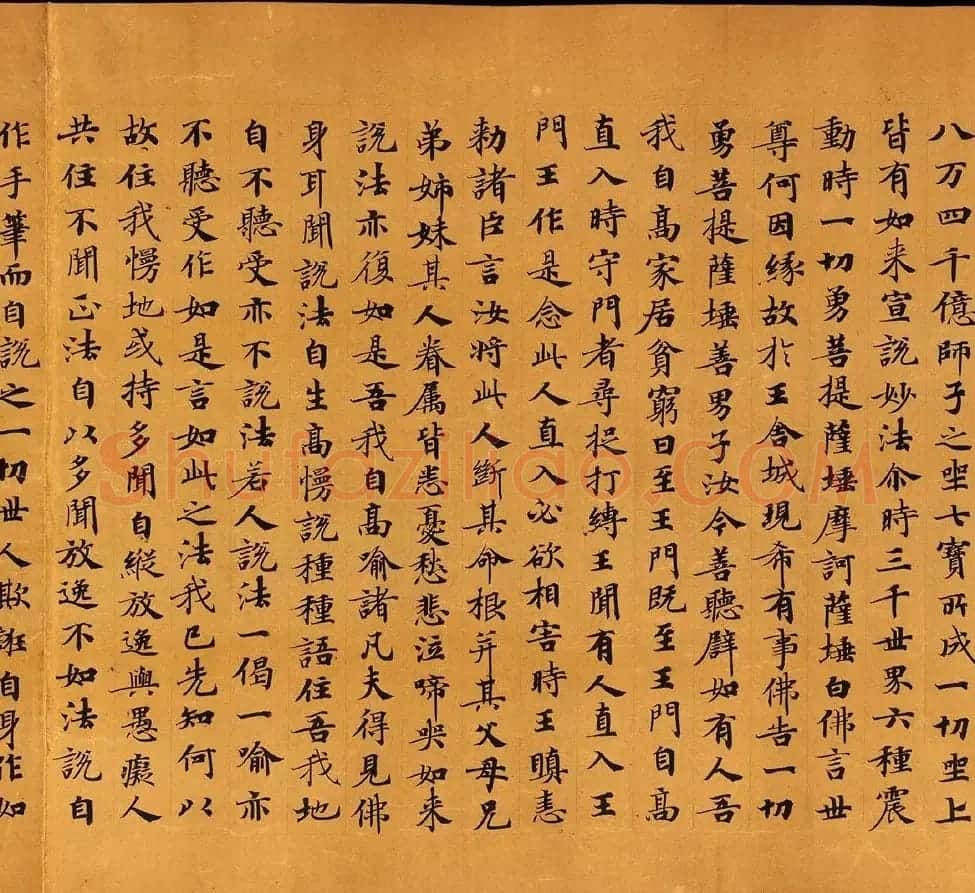 八万四千億師子之㘴七寶所成一切㘴上
皆有如来宣説妙法尒時三千世界六種震
動時一切勇菩提薩埵摩訶薩埵白佛言世
尊何因緣故於王舍城現希有事佛告一切
勇菩提薩埵善男子汝今善聽辟如有人吾
我自髙家居貧窮曰至王門既至王門自髙
直入時守門者尋捉打縛王聞有人直入王
門王作是念此人直入必欲相害時王瞋恚
勑諸臣言汝將此人斷其命根并其父母兄
弟姊妹其人眷属皆悉憂愁悲泣啼哭如来
説法亦復如是吾我自髙喻諸凡夫得見佛
身耳聞説法自生髙慢説種種語住吾我地
自不聽受亦不説法若人説法一偈一喻亦
不聽受作如是言如此之法我已先知何以
故住我慢地或持多聞自縱放逸與愚癡人
共住不聞正法自以多聞放逸不如法説自
作手筆而自説之一切世人欺誑自身作如
Shufaziliao.COM